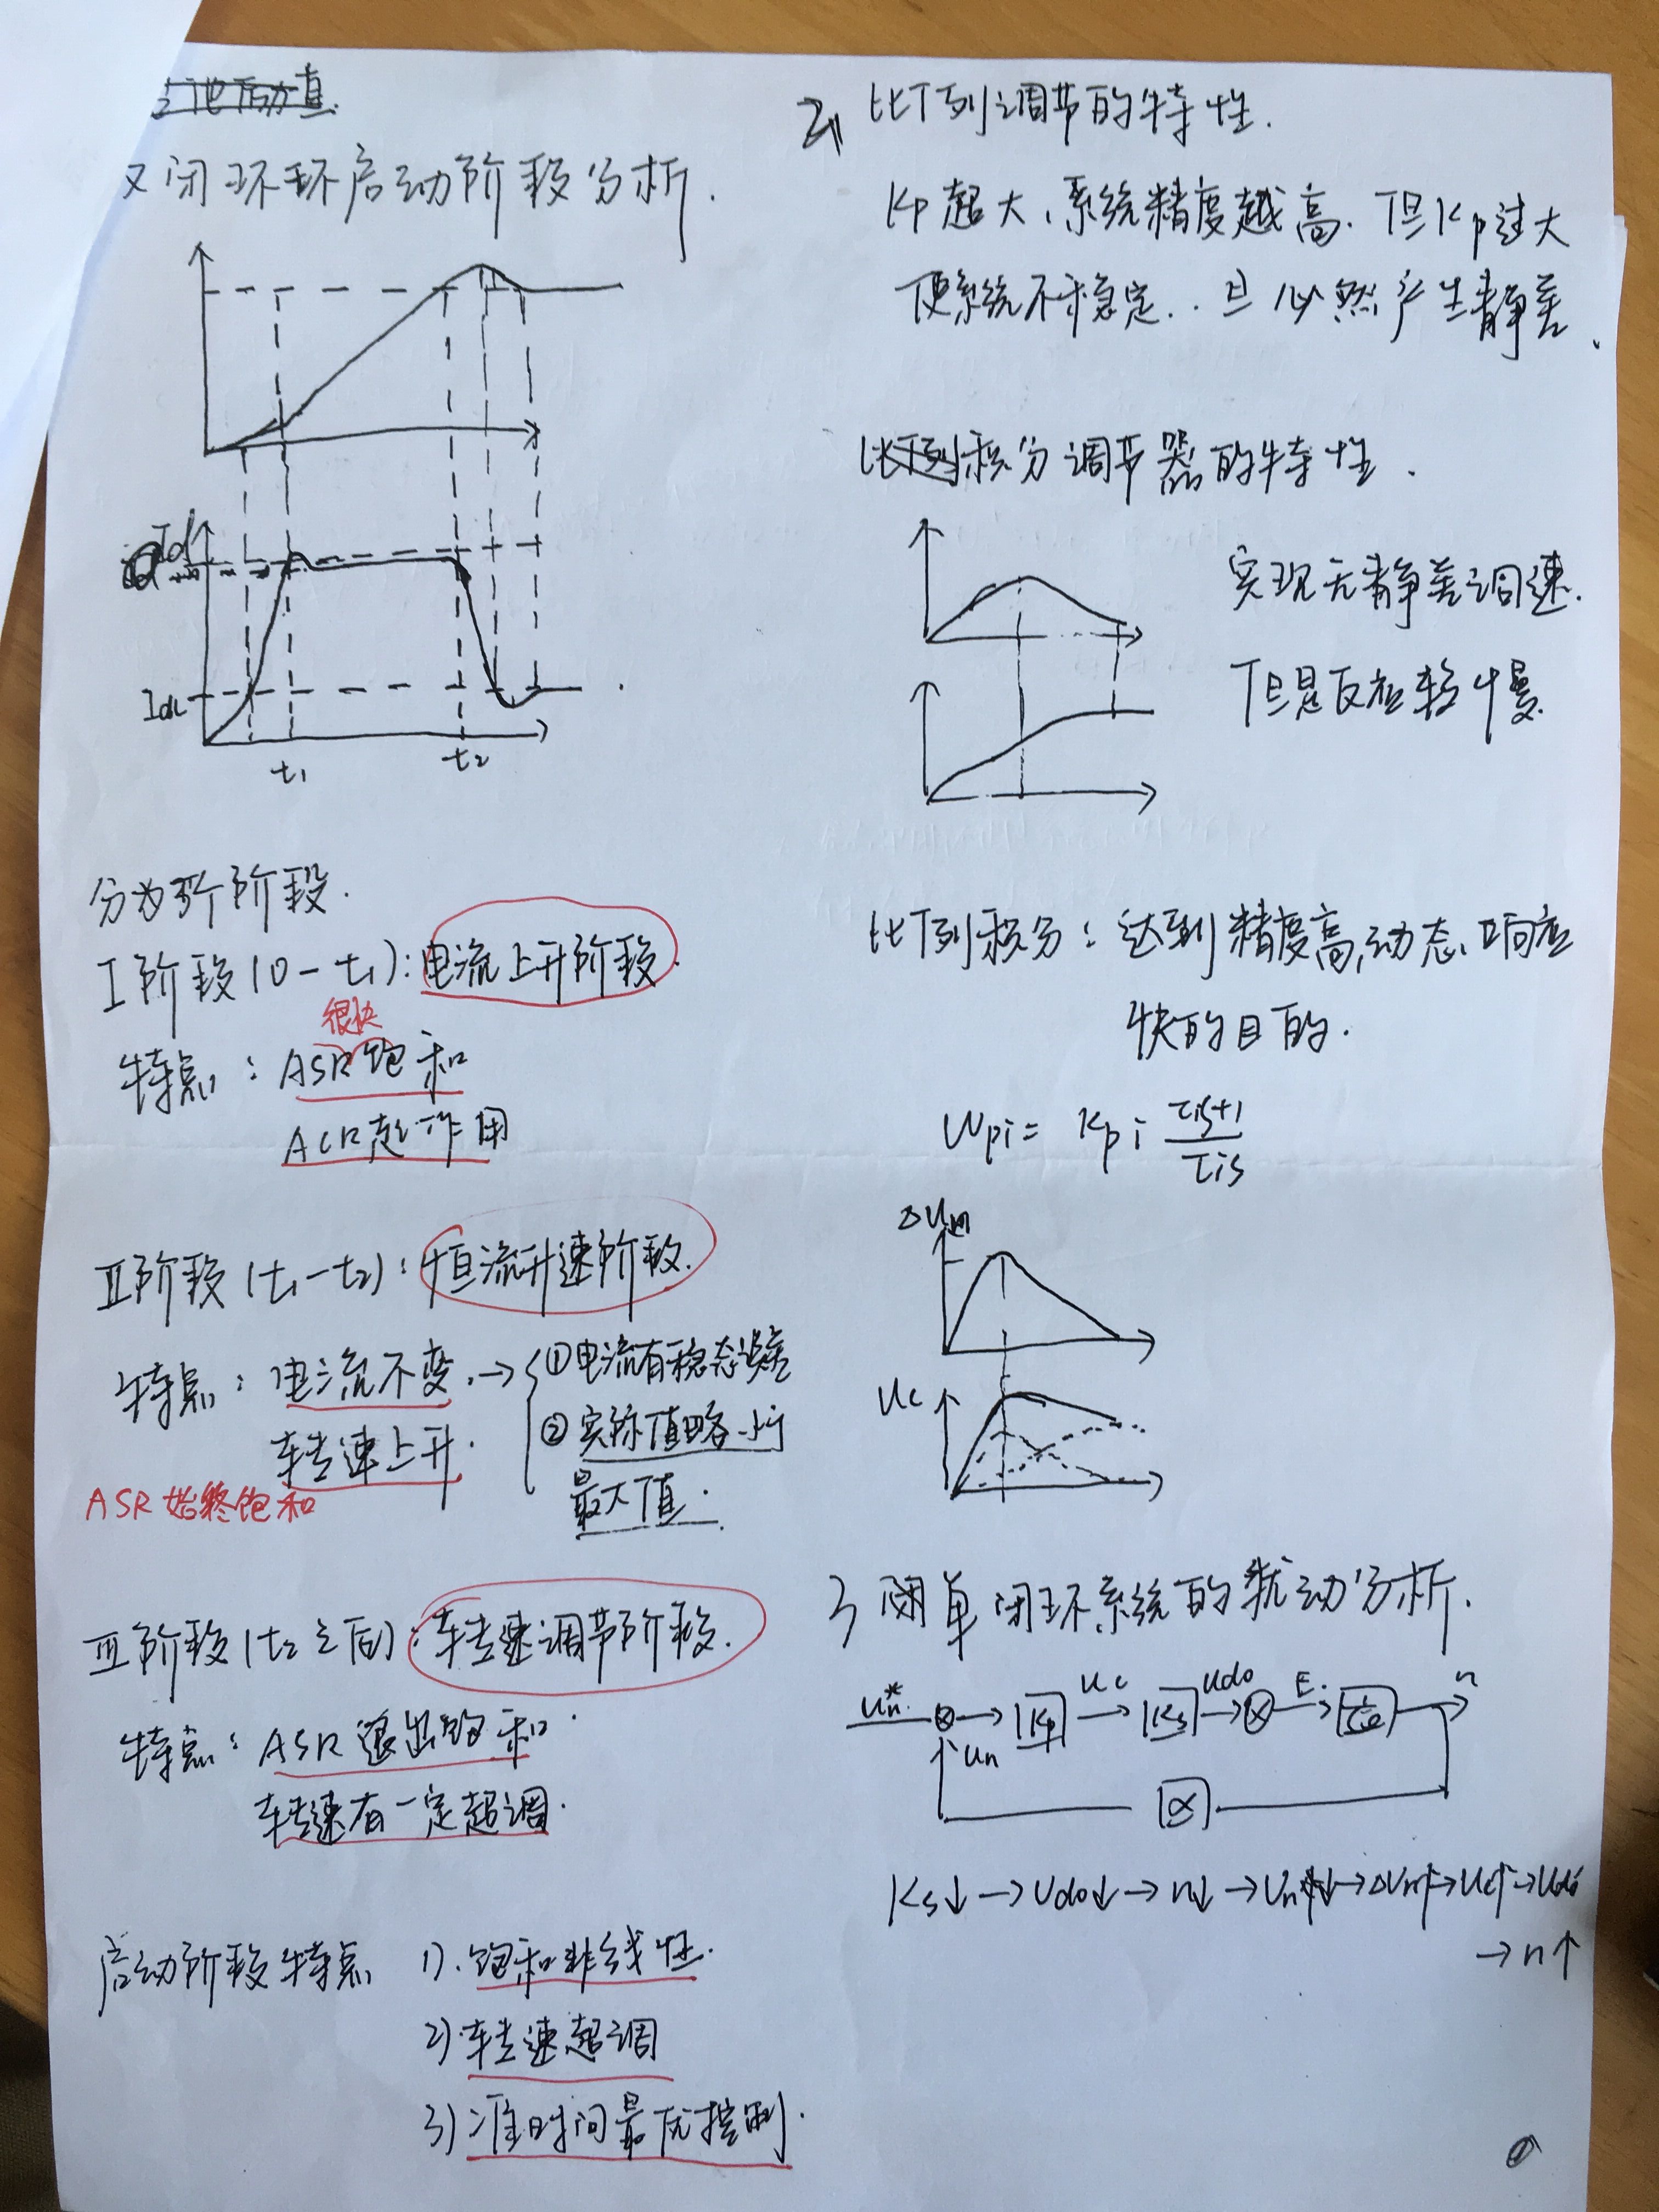 双闭环环启动阶段分析.
Idl
t₁
t₂
分为3个阶段.
I阶段(0-t₁):电流上升阶段.
很快
特点:ASR饱和
ACR起作用
II阶段(t₁-t₂):恒流升速阶段.
特点:电流不变.→ ①电流有稳态误差
转速上升. ②实际值略小于
最大值.
ASR始终饱和
III阶段(t₂之后):转速调节阶段.
特点:ASR退出饱和.
转速有一定超调.
启动阶段特点 1).饱和非线性.
2)转速超调
3)准时间最优控制.
2. 比例调节的特性.
Kp超大、系统精度越高.但Kp过大
使系统不稳定..且必然产生静差.
积分调节器的特性.
实现无静差调速.
但是反应较慢
比例积分:达到精度高,动态响应
快的目的.
Wpi= Kpi (τis+1)/(τis)
ΔUn
Uc
3 单闭环系统的扰动分析.
Un* Kp Uc Ks Udo E. 1/Ce n
Un
α
Ks↓→Udo↓→n↓→Un↓→ΔUn↑→Uc↑→Udo
→n↑